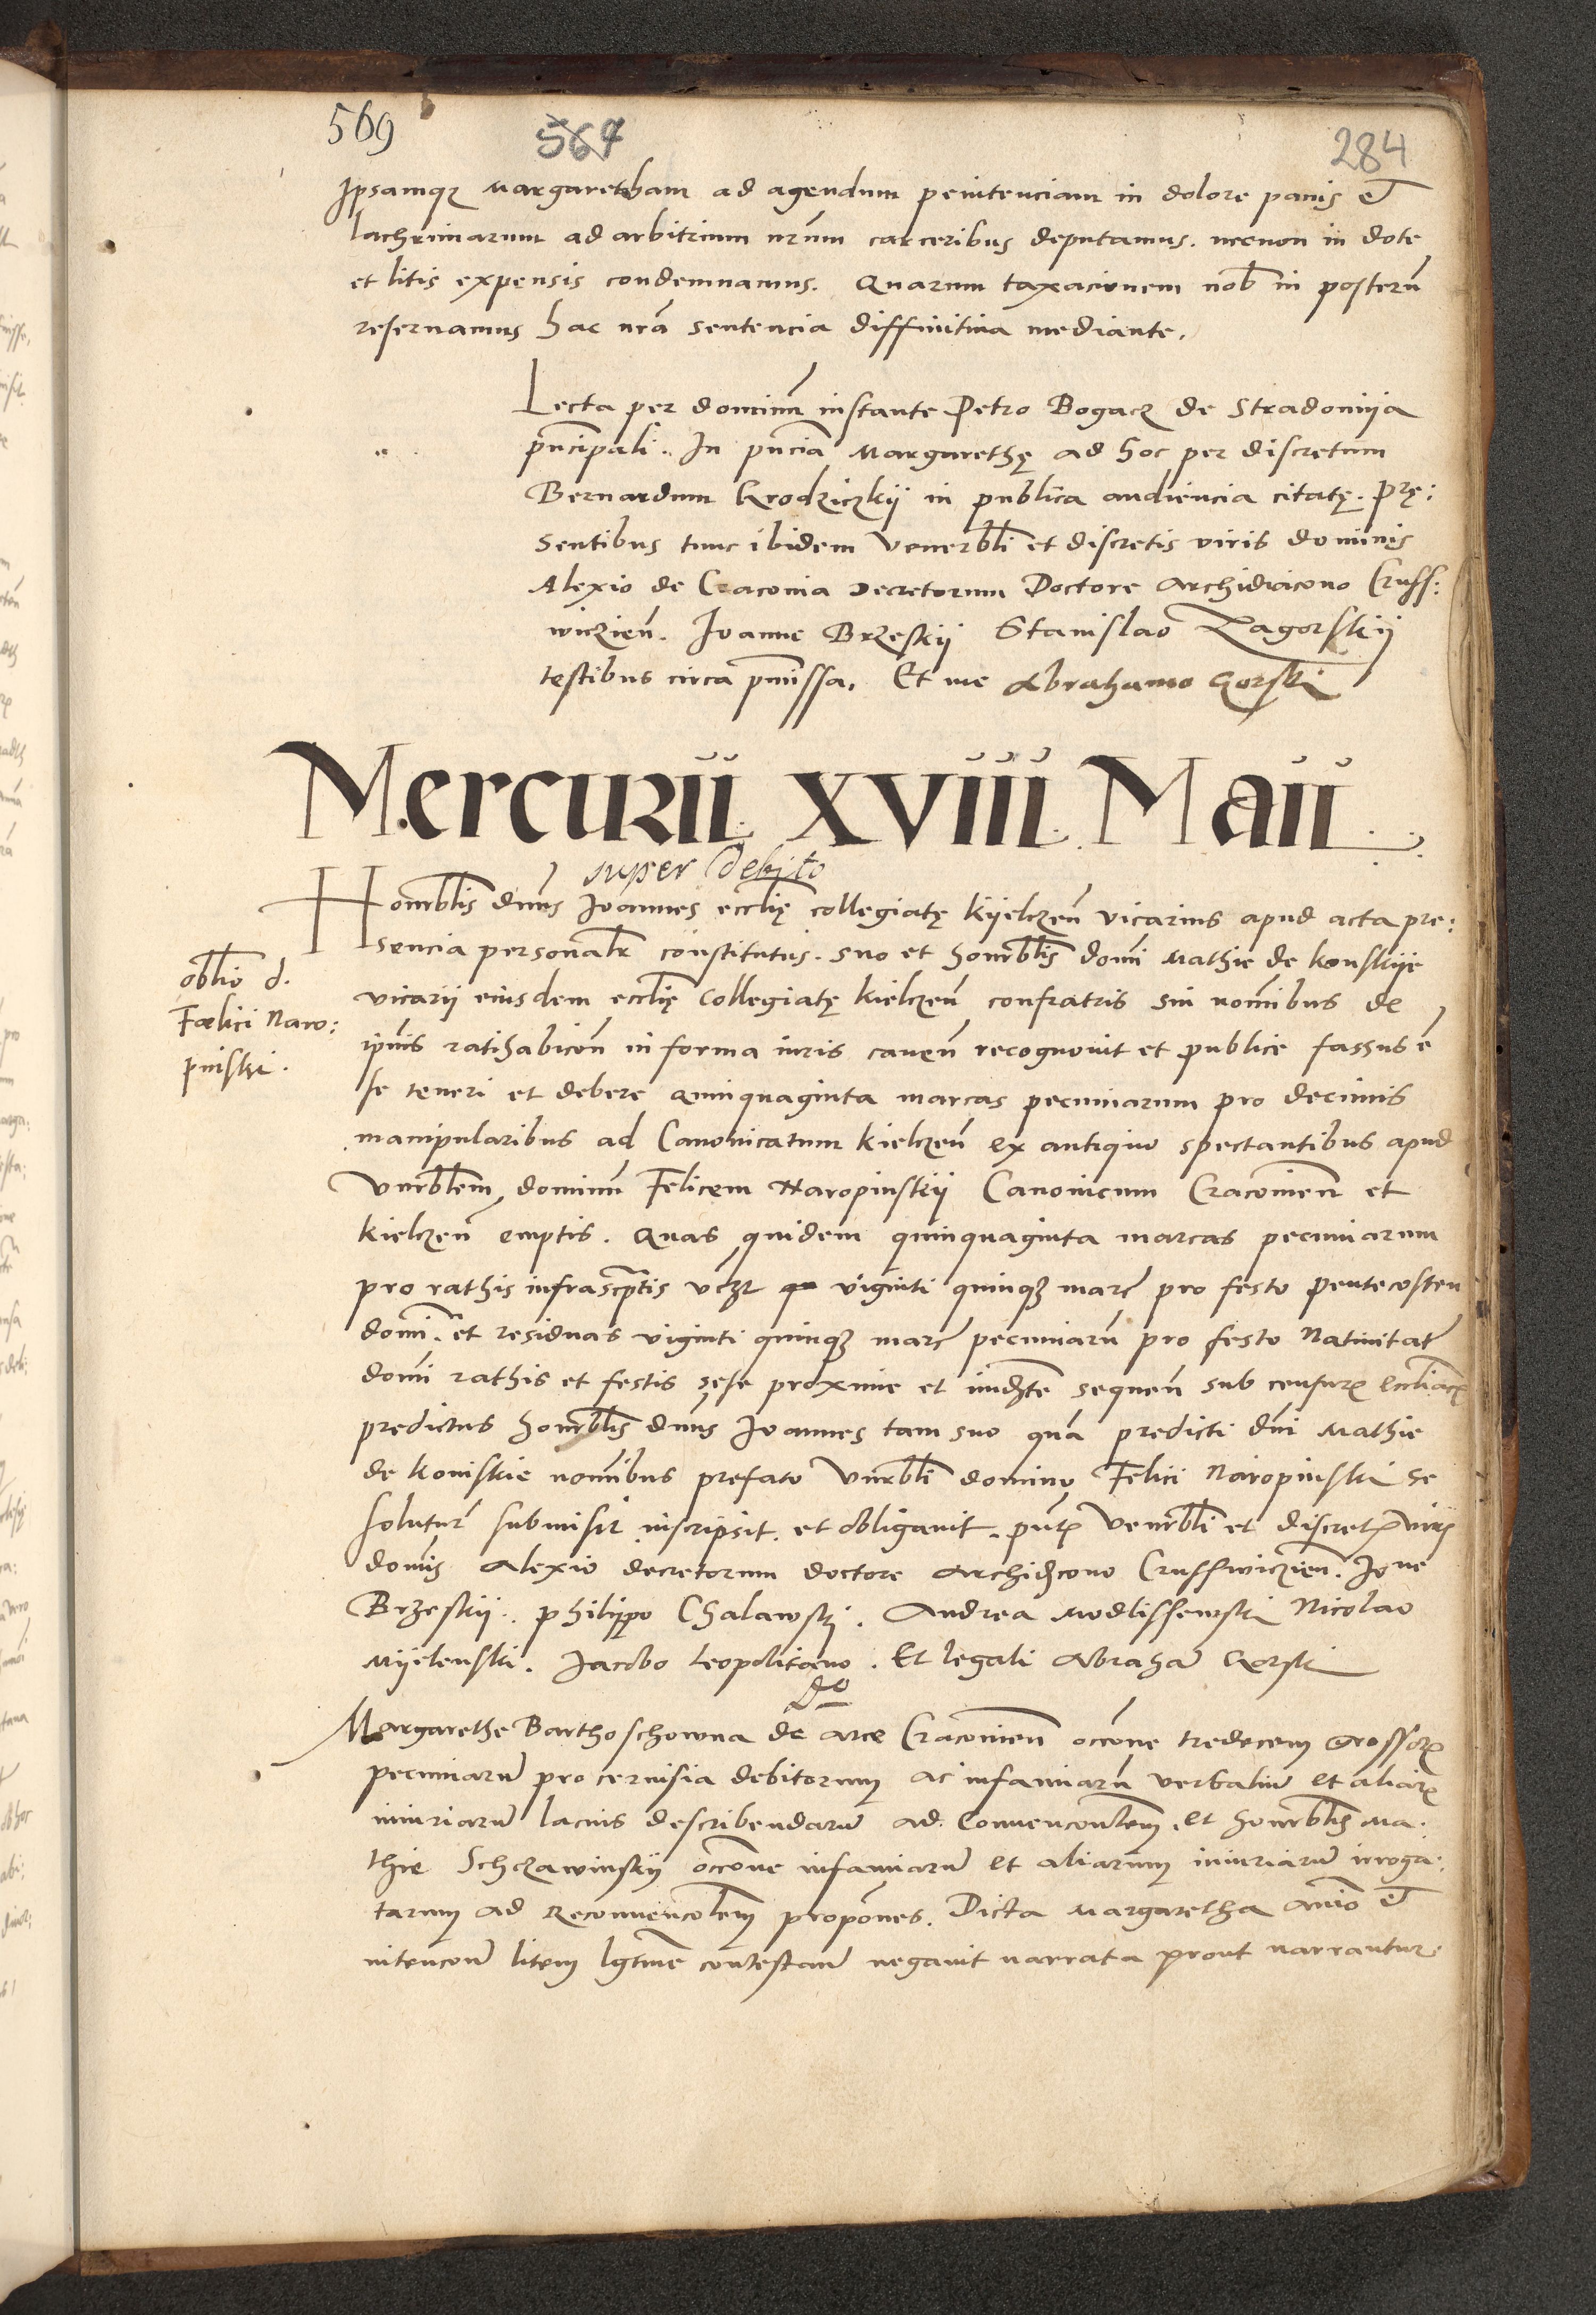 569 567 284
Ipsamqz Margaretham ad agendum penitenciam in dolore panis et
lachrimarum ad arbitrium nrum carceribus deputamus. necnon in dote
et litis expensis condemnamus. Quarum taxacionem nob in posterū
reservamus hac nrā sentencia diffinitiva mediante.
Lecta per dominū instante Petro Bogacz de Stradomija
pncipali. In pnciā Margarethę ad hoc per discretum
Bernardum Grodziczkij in publica audiencia citatę. Prę:
sentibus tunc ibidem Venerbli et discretis viris dominis
Alexio de Cracovia Decretorum Doctore Archidiacono Cruss:
wiczień. Joanne Brzeskij Stanislao Zagorskij
testibus circa pmissa. Et me Abrahamo Gorski
Mercurii XVIII Maii
super debito
Honorblis dnūs Joannes ecclię collegiatę Kijelczeñ vicarius apud acta pre:
sencia personalr constitutus. suo et honorblis domī Mathie de Konskije
oblio d.
Fælici Naro:
pinski.
vicarii eiusdem ecclię Collegiatę Kielczeñ confratris sui nomībus de
ipīus ratihabicoñ in forma iuris caveñ recognovit et publice fassus ē
se teneri et debere quinquaginta marcas pecuniarum pro decimis
manipularibus ad Canonicatum Kielczeñ ex antiquo spectantibus apud
Vnrblem dominū Felicem Naropinskij Canonicum Cracovieñ et
Kielczeñ emptis. Quas quidem quinquaginta marcas pecuniarum
pro rathis infrascptis vczt viginti quinqz marc pro festo Pentecosten
domī. et residuas viginti quinqz marc pecuniarū pro festo Nativitat
domī rathis et festis sese proxime et imdte sequeñ sub censurę eccliacę
predictus honorblis dnūs Joannes tam suo quā predicti dni Mathie
de Koniskie nomībus prefato Vnrbli domino Felici Naropinski se
soluturū submisit inscripsit et obligavit. pntę Venrbli et discretę viris
domīs Alexio decretorum doctore Archidcono Crusswiczień. Jone
Brzeskij. Philippo Chalawskj. Andrea Modlissewski Nicolao
Mijelenski. Jacobo Leopolitano. Et legali Abrahā Gorski
de
Margarethe Barthoschowna de arce Cracovieñ occone tredecem grossorę
pecuniarū pro cervisia debitorum ac infamiarū verbaliū et aliarę
iniuriarū lacius describendarū ad Convenconlem. et honorblis Ma:
thie Schczawinskij occone infamiarū et aliarum iniuriarū irroga:
tarum ad Reconvencolem propōnes. Dicta Margaretha aniō et
intencone litem lgtme contestanī negavit narrata prout narrantur.